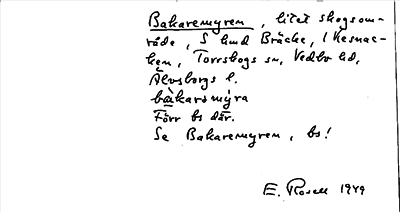 Bakaremyren, litet skogsom-
råde, S hmd Bräcke, i Kesnac-
ken, Torrskogs sn, Vedbo hd,
Älvsborgs l.
bàkarəmýra
Förr bs där.
Se Bakaremyren, bs!
E. Rosell 1949